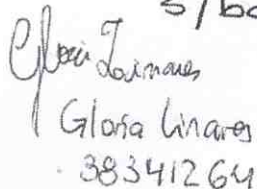 Gloria Linares
Gloria Linares
38341264